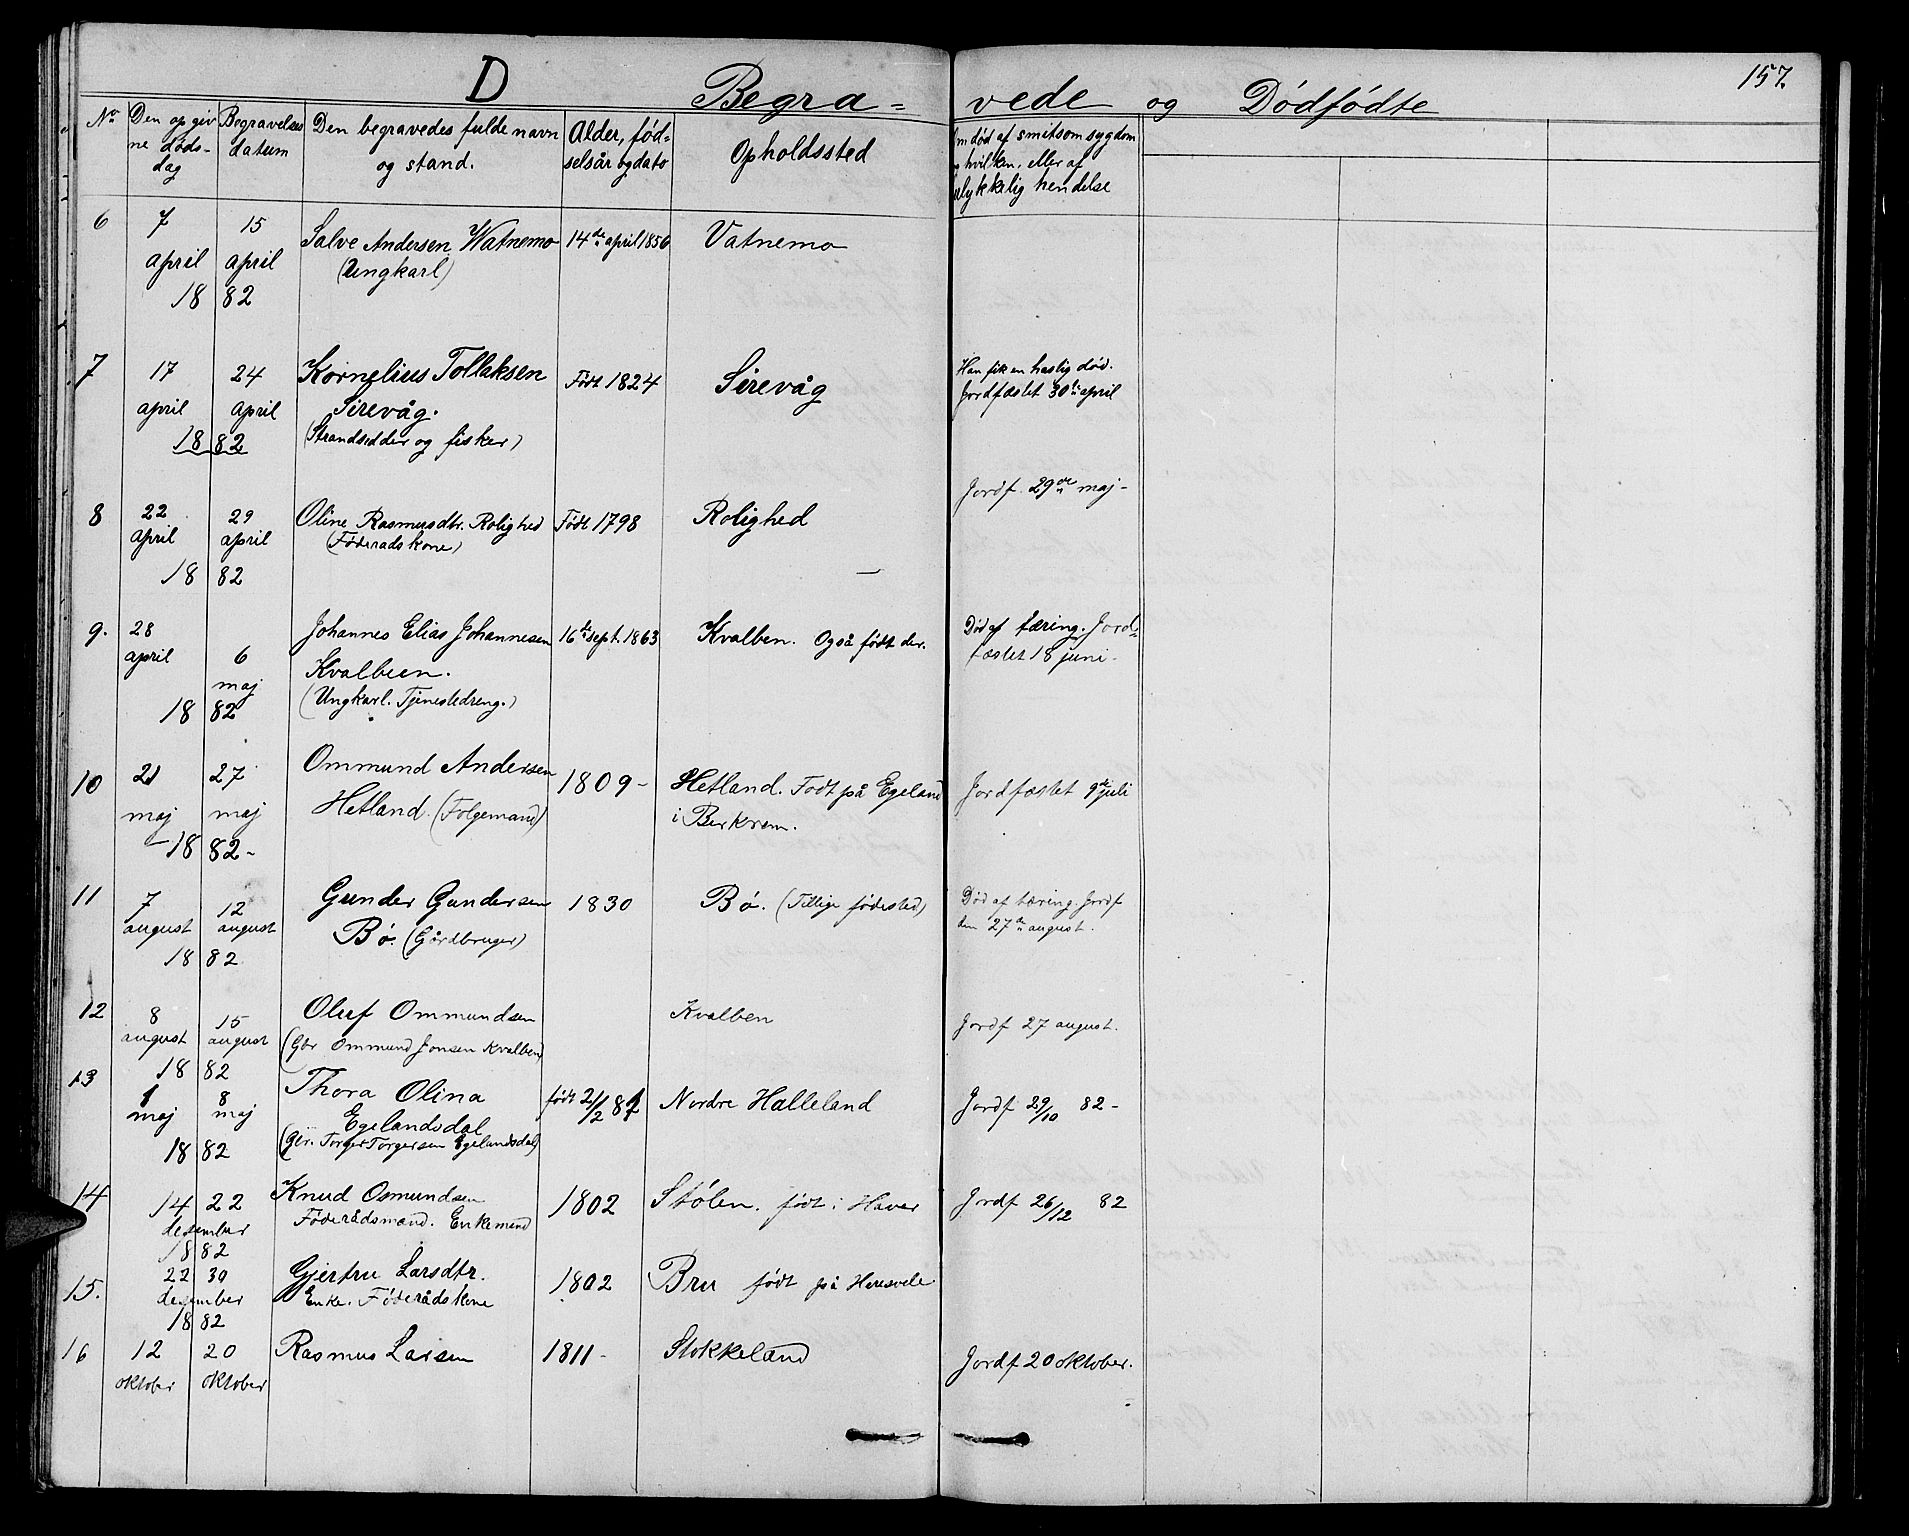 157.
D
Begra= vede og Dødfødte
No
Den opgiv
ne døds-
dag
Begravelses
datum
Den begravedes fulde navn
og stand.
Alder, fød=
selsår og dato
Opholdssted
m død af smitsom sygdom
hvilken, eller af
ulykkelig hendelse
6
7
april
15
april
18 82
Salve Andersen Watnemo
(Ungkarl)
14de april 1856
Vatnemo
7
17
april
24
april
18 82
Kornelius Tollaksen
Sirevåg.
(Strandsidder og fisker)
Født 1824
Sirevåg
Han fik en hastig død.
Jordfæstet 30te april
8
22
april
29
april
18 82
Oline Rasmusdtr. Rolighed
(Føderadskone)
Født 1798
Rolighed
Jordf. 29de maj-
9.
28
april
6
maj
18 82
Johannes Elias Johannesen
Kvalbein.
(Ungkarl. Tjenestedreng.)
16de sept. 1863
Kvalben. Også født der.
Død af tæring. Jord=
fæstet 18 juni-
10
21
maj
27
maj
18 82-
Ommund Andersen
Hetland. (Folgemand)
1809-
Hetland. Født på Egeland
i Berkrem.
Jordfæstet 9de juli
11
7
august
12
august
18 82
Gunder Gundersen
Bø. (Gårdbruger)
1830
Bø. (Tillige fødested)
Død af tæring. Jordf
den 27de august.
12
8
august
15
august
18 82
Oluf Ommundsen
(Gbr Ommund Jonsen Kvalben)
Kvalben
Jordf 27 august.
13
1
maj
8
maj
18 82
Thora Olina
Egelandsdal
(Gbr. Torger Torgersen Egelandsdal)
født 21/2 81
Nordre Halleland
Jordf 29/10 82-
14
14 22
desember
18 82
Knud Osmundsen
Føderådsmand. Enkemand
1802
Stølen. født i Haver
Jordf 26/12 82
15.
22 30
desember
18 82
Gjertru Larsdtr.
Enke. Føderådskone
1802
Bru født på Heresvele
16
12
oktober
20
oktober
Rasmus Larsen
1811-
Stokkeland
Jordf 20 oktober.